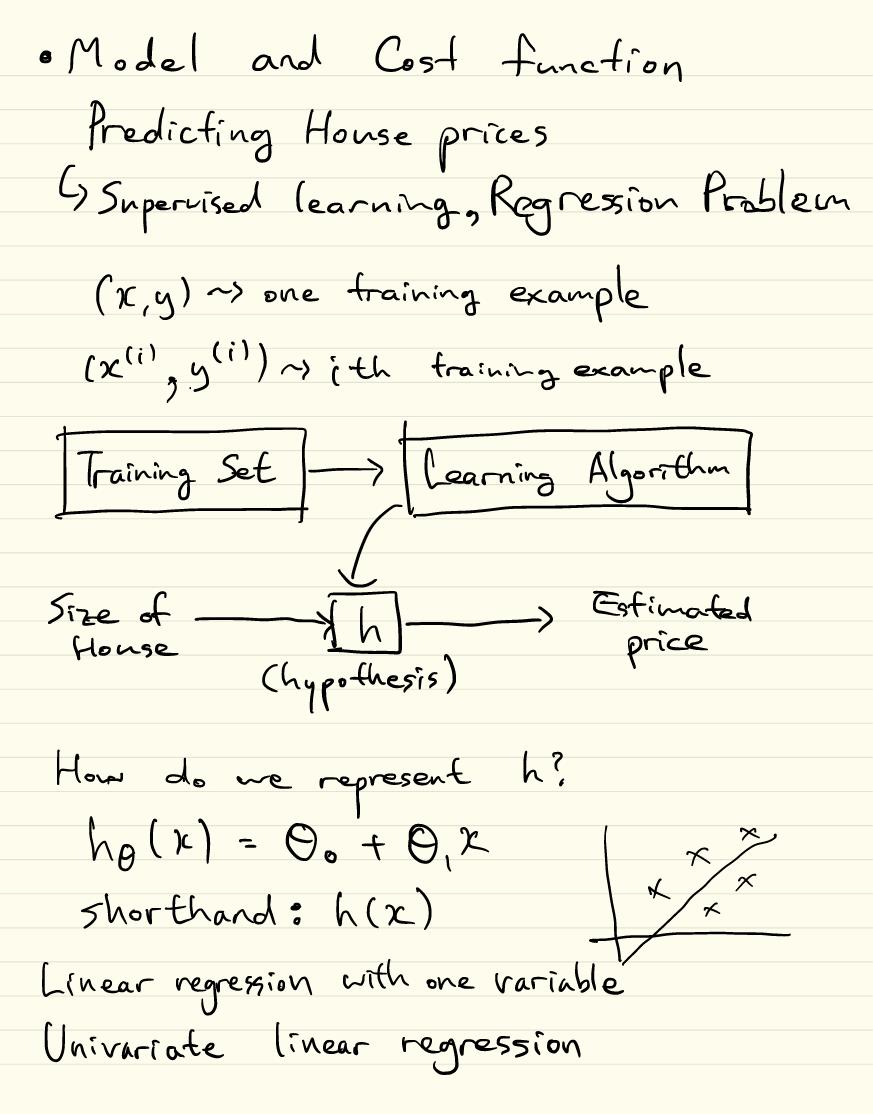 • Model and Cost function
Predicting House prices
↳ Supervised learning, Regression Problem
(x,y) ~> one training example
(x⁽ⁱ⁾, y⁽ⁱ⁾) ~> ith training example
Training Set → Learning Algorithm
Size of House → h → Estimated price
(hypothesis)
How do we represent h?
hθ(x) = θ₀ + θ₁x
shorthand: h(x)
Linear regression with one variable
Univariate linear regression